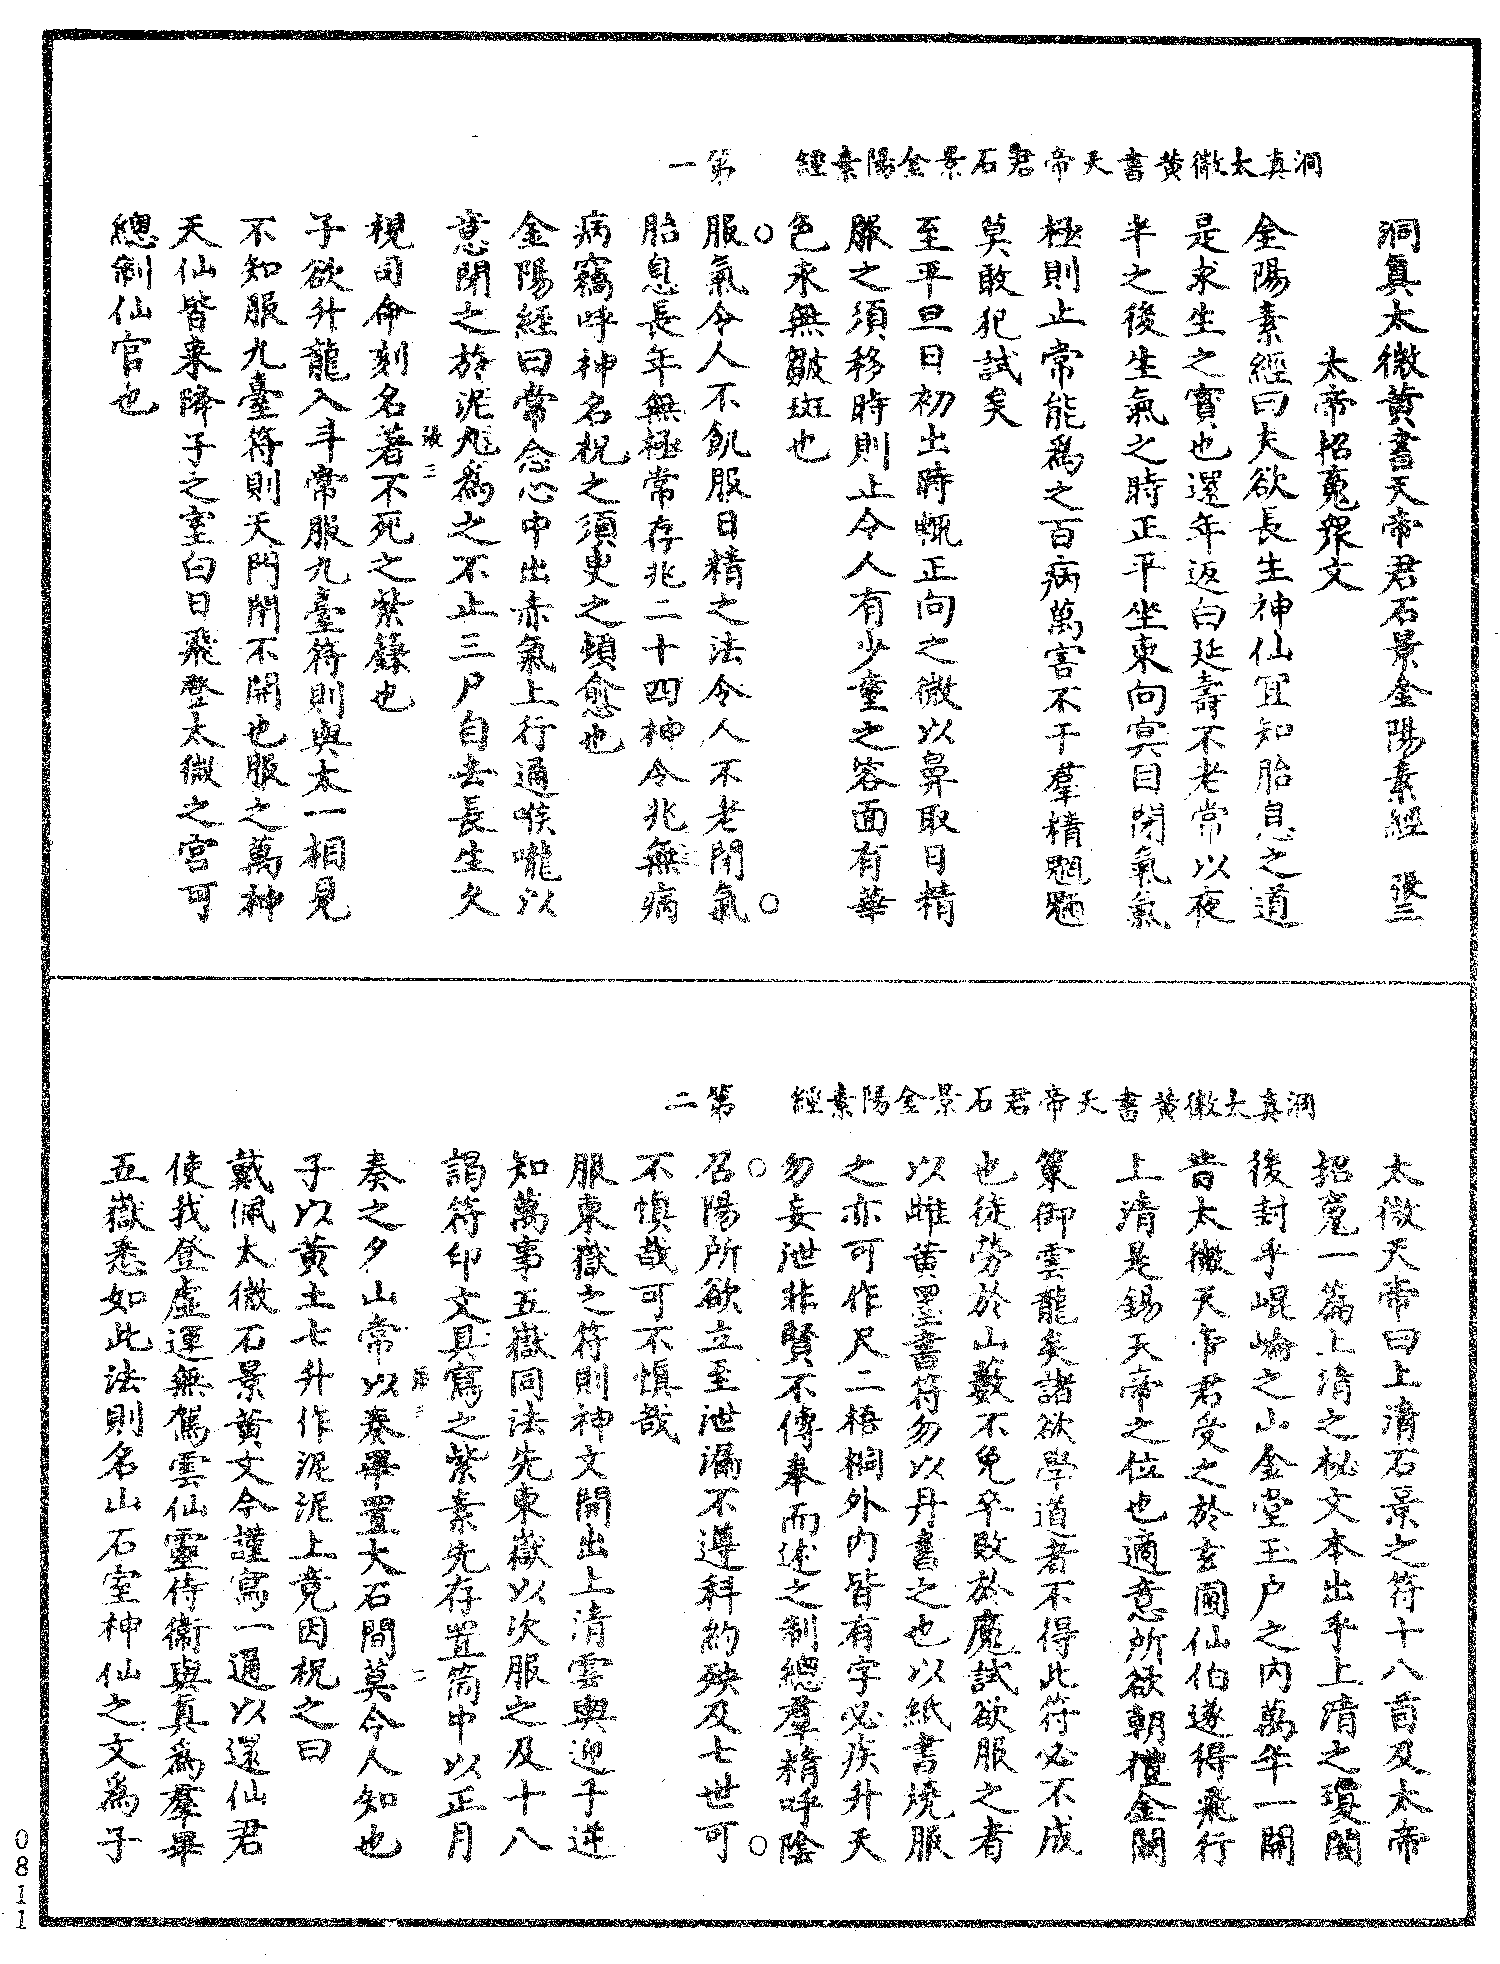 洞真太微黄書天帝君石景金陽素經　第一
洞真太微黄書天帝君石景金陽素經　張三
太帝招䰟衆文
金陽素經曰夫欲長生神仙宜知胎息之道
是求生之寳也還年返白延壽不老常以夜
半之後生氣之時正平坐東向㝠目閉氣氣
極則止常能爲之百病萬害不干羣精魍魎
莫敢犯試矣
至平旦日初出時輒正向之微以鼻取日精
服之須移時則止令人有少童之容面有華
色永無皺斑也
服氣令人不飢服日精之法令人不老閉氣
胎息長年無極常存兆二十四神令兆無病
病竊呼神名祝之須臾之頓愈也
金陽經曰常念心中出赤氣上行通喉嚨以
意閉之於泥丸爲之不止三尸自去長生久
視司命刻名著不死之紫籙也
子欲升龍入斗常服九臺符則與太一相見
不知服九臺符則天門閉不開也服之萬神
天仙皆来降子之室白日飛登太微之宫可
總制仙官也
洞真太微黄書天帝君石景金陽素經　第二
太微天帝曰上清石景之符十八首及太帝
招䰟一篇上清之秘文本出乎上清之瓊闕
後封乎崐崘之山金堂玉户之内萬年一開
昔太微天帝君受之於玄圃仙伯遂得飛行
上清是錫天帝之位也適意所欲朝禮金闕
策御雲龍矣諸欲學道者不得此符必不成
也徒勞於山藪不免卒敗於魔試欲服之者
以雌黄墨書符勿以丹書之也以紙書燒服
之亦可作尺二梧桐外内皆有字必疾升天
勿妄泄非賢不傳奉而述之制總羣精呼陰
召陽所欲立至泄漏不遵科約殃及七世可
不慎哉可不慎哉
服東嶽之符則神文開出上清雲輿迎子逆
知萬事五嶽同法先東嶽以次服之及十八
謁符印文具寫之紫素先存置筒中以正月
奏之夕山常以奏畢置大石間莫令人知也
子以黄土七升作泥泥上竟因祝之曰
戴佩太微石景黄文今謹寫一通以還仙君
使我登虚運無駕雲仙靈侍衞與真爲羣畢
五嶽悉如此法則名山石室神仙之文爲子
0811